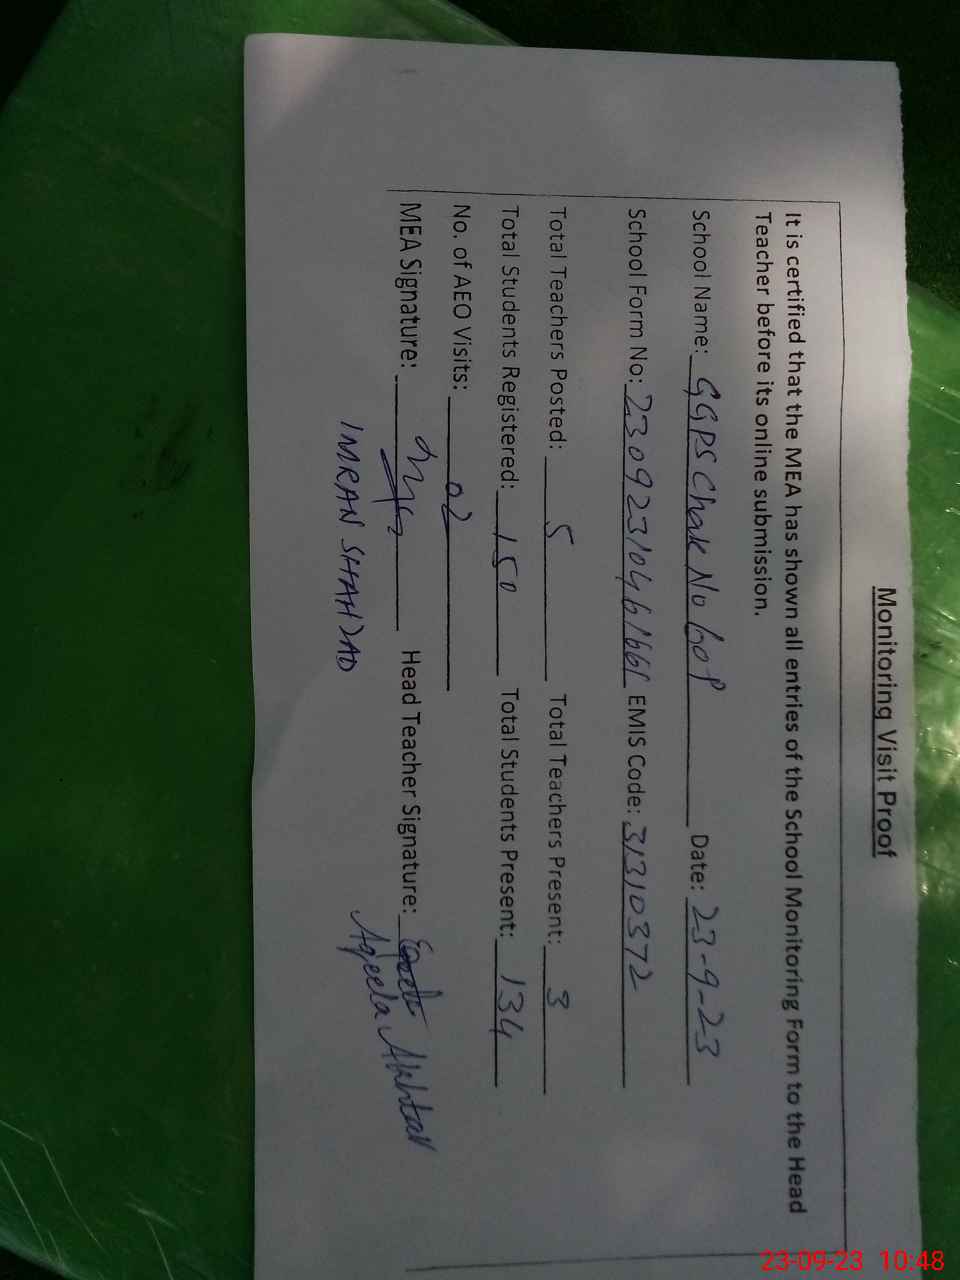 Monitoring Visit Proof
It is certified that the MEA has shown all entries of the School Monitoring Form to the Head
Teacher before its online submission.
School Name: GGPS Chak No 60P Date: 23-9-23
School Form No: 23092310461661 EMIS Code: 31310372
Total Teachers Posted: 5 Total Teachers Present: 3
Total Students Registered: 150 Total Students Present: 134
No. of AEO Visits: 02
MEA Signature: Head Teacher Signature:
IMRAN SHAHZAD Aqeela Akhtar
23-09-23 10:48